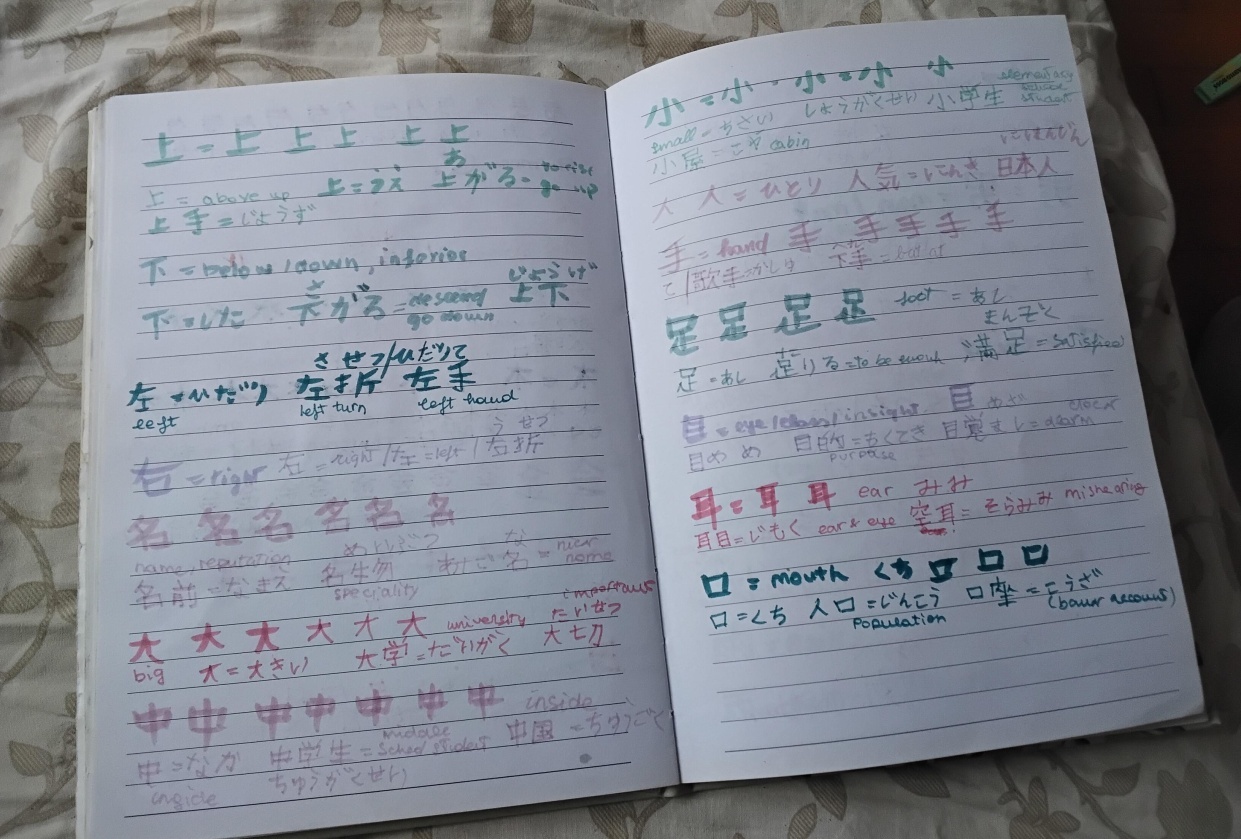 上 = 上 上 上 上 上
あ
上 = above up 上 = うえ 上がる - to rise
go up
上手 = じょうず
下 = below / down, inferior
さ じょうげ
下 = した 下がる = descend 上下
go down
させつ / ひだりて
左 = ひだり 左折 左手
left left turn left hand
うせつ
右 = right 右 = right / 左 = left / 右折
名 名 名 名 名 名
name, reputation めいぶつ な
名前 = なまえ あだ名 = nick name
speciality
important
大 大 大 大 大 大 university たいせつ
big 大 = 大きい 大学 = だいがく 大切
中 中 中 中 中 中 中 inside
middle
中 = なか 中学生 = school student 中国 = ちゅうごく
inside ちゅうがくせい
小 = 小 - 小 = 小 小
elementary school student
small = ちさい しょうがくせい 小学生
小屋 = こや cabin
にほんじん
大 人 = ひとり 人気 = にんき 日本人
手 = hand 手 手 手 手 手
て / 歌手 = かしゅ 下手 =
足 足 足 足 foot = あし
まんぞく
足 = あし 足りる = to be enough 満足 = satisfied
目 = eye / class / insight 目 めざ clock
目 め め 目的 = もくてき 目覚まし = alarm
purpose
耳 = 耳 耳 ear みみ
耳目 = じもく ear & eye 空耳 = そらみみ mishearing
口 = mouth くち 口 口 口
口 = くち 人口 = じんこう 口座 = こうざ
population (bank account)